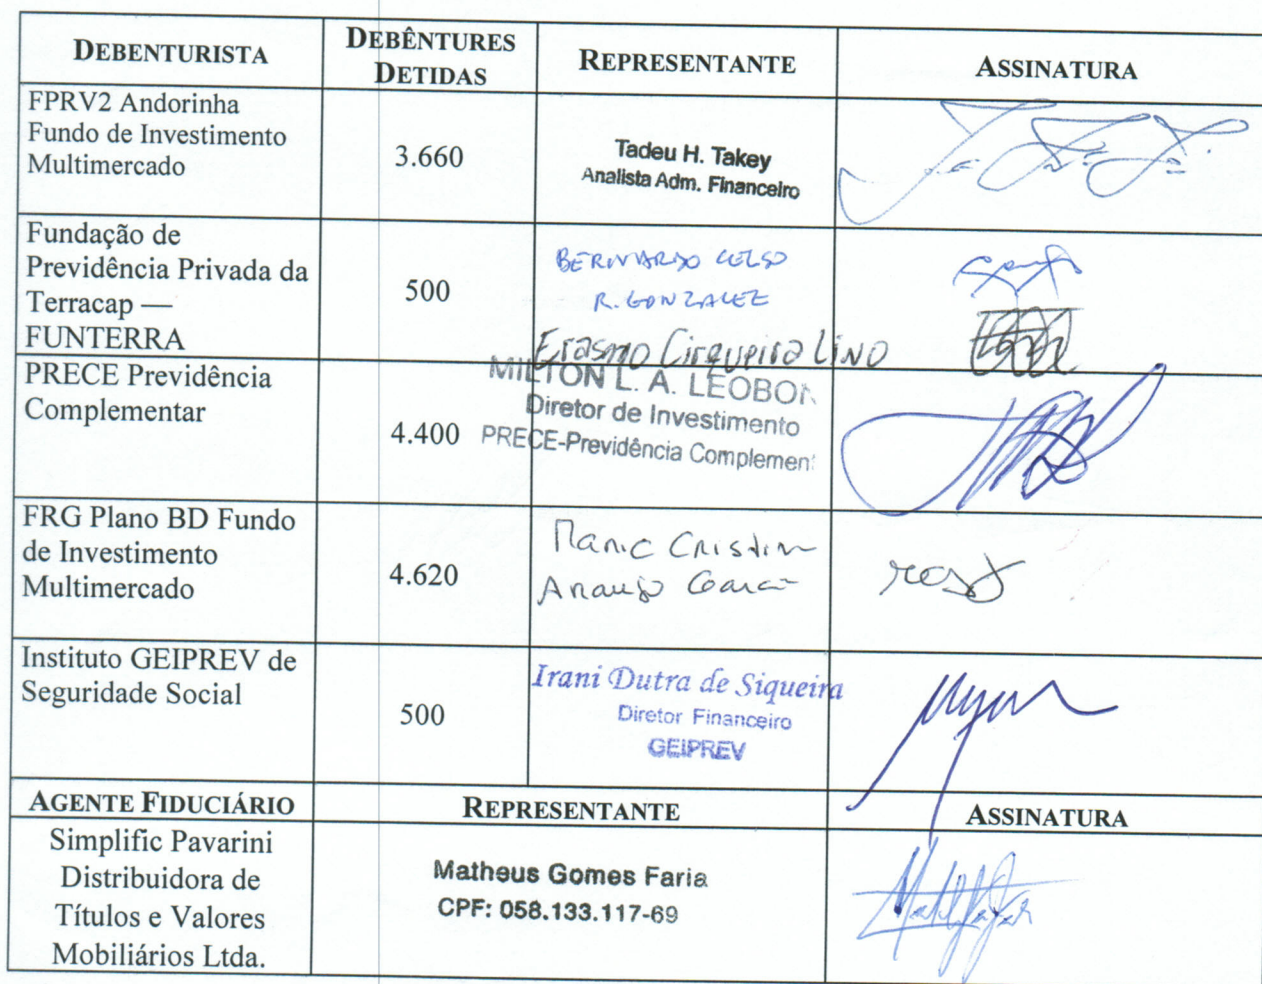 DEBENTURISTA
DEBÊNTURES
DETIDAS
REPRESENTANTE
ASSINATURA
FPRV2 Andorinha
Fundo de Investimento
Multimercado
3.660
Tadeu H. Takey
Analista Adm. Financeiro
Fundação de
Previdência Privada da
Terracap —
FUNTERRA
500
BERNARDO CELSO
R. GONZALEZ
Erasmo Cirqueira Lino
PRECE Previdência
Complementar
4.400
MILTON L. A. LEOBON
Diretor de Investimento
PRECE-Previdência Complement
FRG Plano BD Fundo
de Investimento
Multimercado
4.620
Cristin
Araujo
Instituto GEIPREV de
Seguridade Social
500
Irani Dutra de Siqueira
Diretor Financeiro
GEIPREV
AGENTE FIDUCIÁRIO
REPRESENTANTE
ASSINATURA
Simplific Pavarini
Distribuidora de
Títulos e Valores
Mobiliários Ltda.
Matheus Gomes Faria
CPF: 058.133.117-69